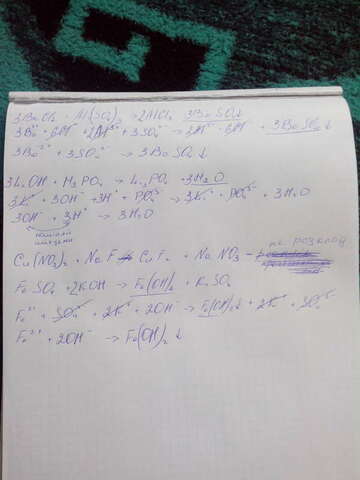 3BaCl₂ + Al₂(SO₄)₃ → 2AlCl₃ + 3BaSO₄↓
3Ba²⁺ + 6Cl⁻ + 2Al³⁺ + 3SO₄²⁻ → 2Al³⁺ + 6Cl⁻ + 3BaSO₄↓
3Ba²⁺ + 3SO₄²⁻ → 3BaSO₄↓
3LiOH + H₃PO₄ → Li₃PO₄ + 3H₂O
3Li⁺ + 3OH⁻ + 3H⁺ + PO₄³⁻ → 3Li⁺ + PO₄³⁻ + 3H₂O
3OH⁻ + 3H⁺ → 3H₂O
не розклад
Cu(NO₃)₂ + NaF ≠ CuF₂ + NaNO₃ -
FeSO₄ + 2KOH → Fe(OH)₂↓ + K₂SO₄
Fe²⁺ + SO₄²⁻ + 2K⁺ + 2OH⁻ → Fe(OH)₂↓ + 2K⁺ + SO₄²⁻
Fe²⁺ + 2OH⁻ → Fe(OH)₂↓